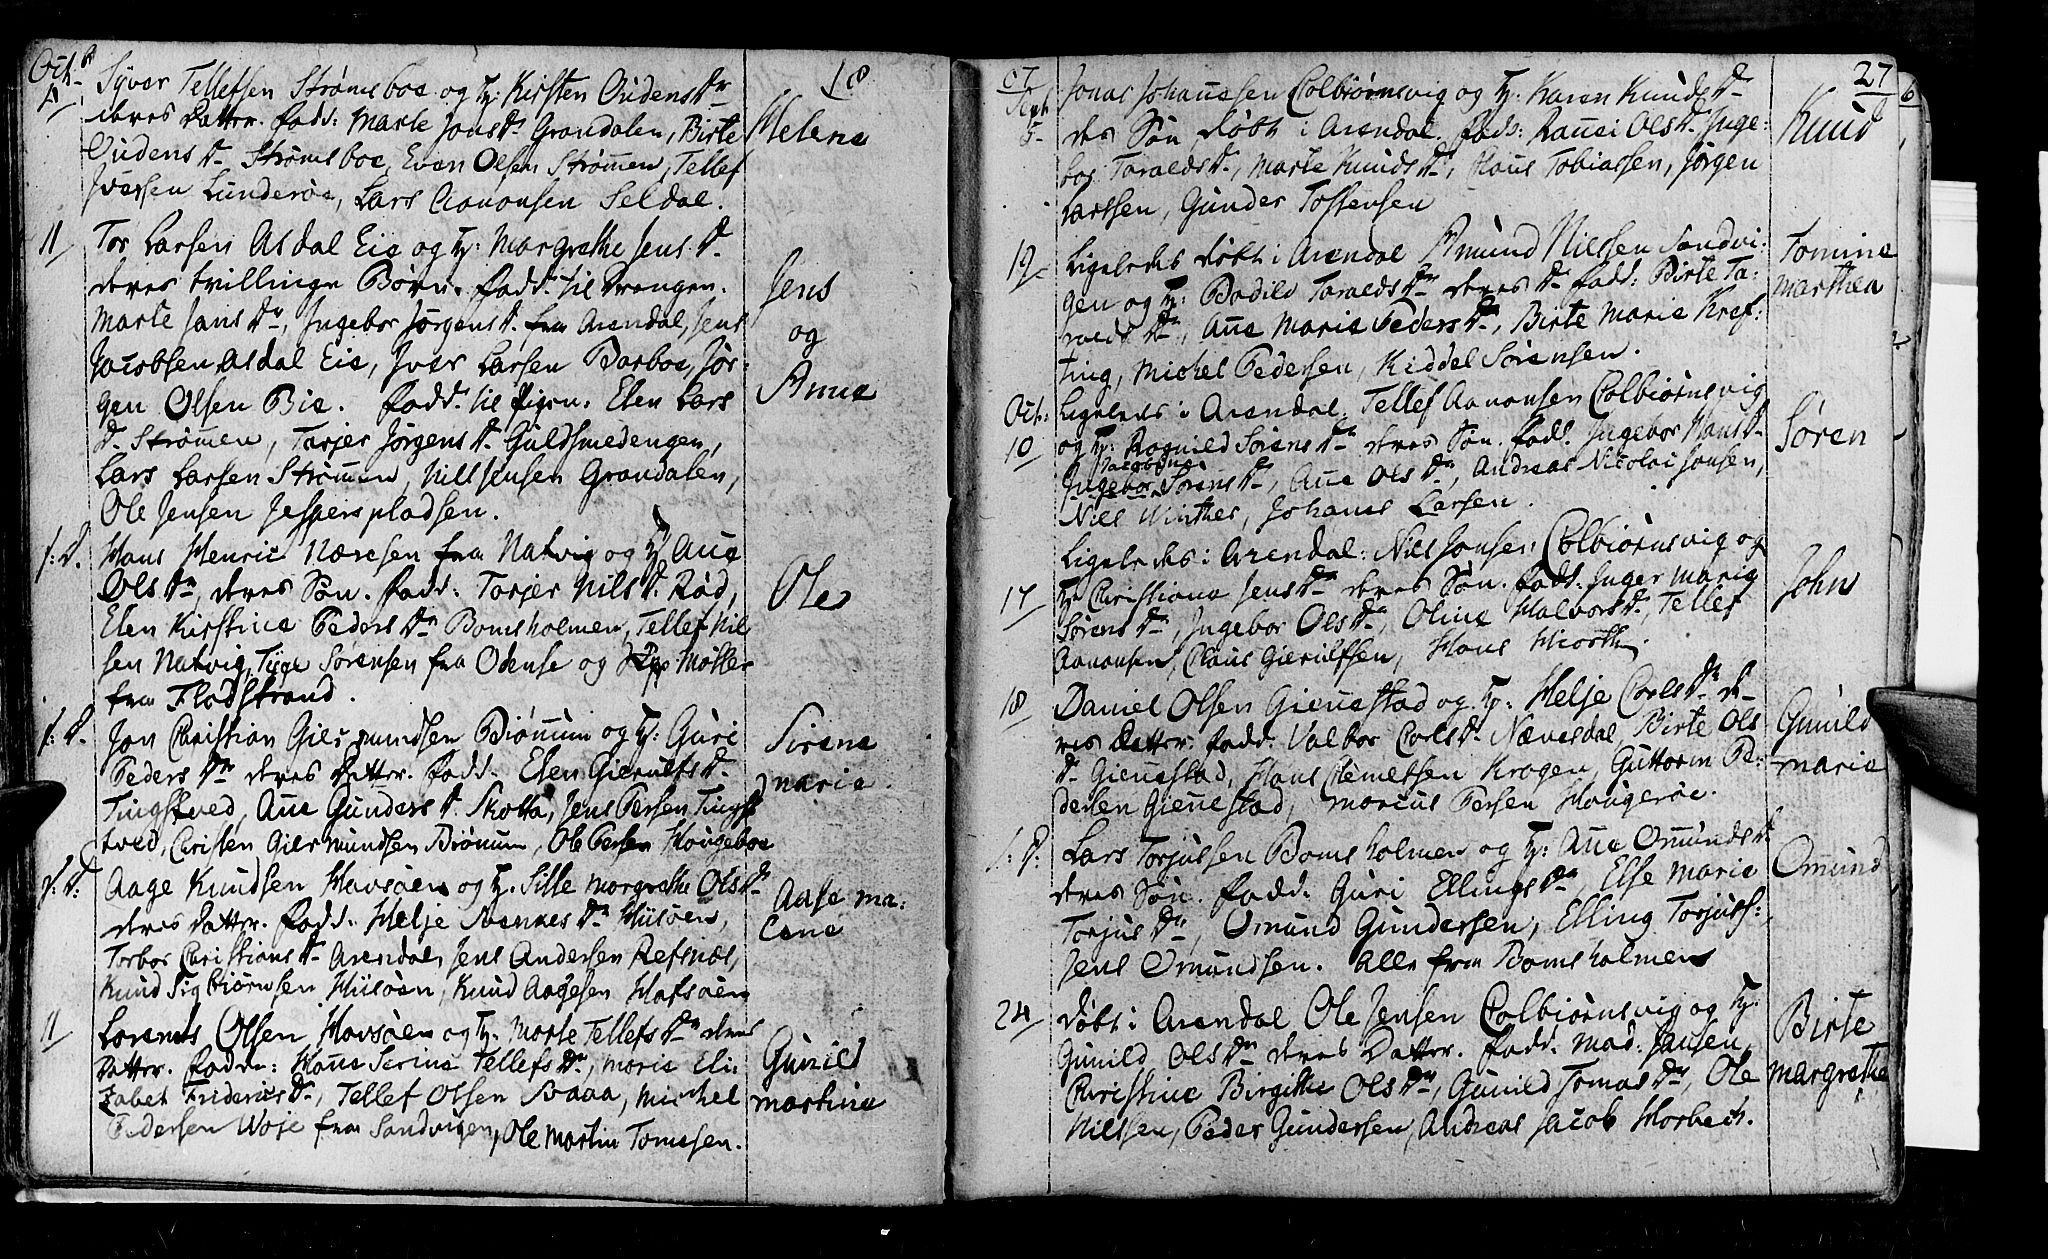 Octb
4 Syver Tellefsen Strømsboe og H: Kirsten Ouidens Dr
deres Datter. fadd: Marte Jons D. Grandalen, Birte
Ouidens D. Strømsboe, Even Olsen Strømen, Tellef
Iversen Lunderøe, Lars Aanonsen Seldal.
Helene
18
11 Tor Larsen Asdal Eie og H: Margrethe Jens D.
deres tvillinge Børn. fadd: til Drengen.
Marte Jans Dr, Ingebor Jørgens D. fra Arendal, Jens
Jacobsen Asdal Eie, Iver Larsen Barboe, Jør-
gen Olsen Bie. fadd. til Pigen: Elen Lars
D. Strømen, Torjer Jørgens D. Guldsmedengen,
Lars Larsen Strømen, Nils Jensen Grandalen,
Ole Jensen Jesperspladsen.
Jens
og
Anne
s: D. Hans Henric Næresen fra Natvig og H Ane
Ols Dr, deres Søn. fadd: Torjer Nils D. Rød,
Elen Kirstine Peders Dr Bomsholmen, Tellef Nil
sen Natvig, Tyge Sørensen fra Odense og Møller
fra Fladstrand.
Ole
s: D. Jon Christian Giermundsen Biønnum og H: Guri
Peders Dr deres Datter. fadd. Elen Gierulfs D.
Tingstved, Ane Gunders D. Skotta, Jens Persen Tingst
tved, Christen Giermundsen Biønum, Ole Persen Hougeboe
Sirene
marie.
s: D: Aage Knudsen Havsøen og H. Sille Margrethe Ols D.
deres Datter. fadd: Helje Svennes Dr Hiisøen,
Torbor Christians D. Arendal, Jens Andersen Refsnæs,
Knud Sigbiørnsen Hiisøen, Knud Aagesen Hafsøen
Aase Ma-
lene
11 Lorents Olsen Havsøen og H. Marte Tellefs Dr deres
Datter. fadd: Hane Serine Tellefs Dr, Marie Eli-
zabet Friderics Dr, Tellef Olsen Svaaa, Michel
Pedersen Woje fra Sandvigen, Ole Martin Tomesen.
Gunild
Martine
27
Sept
5 Jonas Johannesen Colbiørnsvig og H: Karen Knuds D.
des Søn døbt i Arendal. fadd: Rannei Ols D. Inge-
bor Taralds D., Marte Knuds D., Claus Tobiassen, Jørgen
Larssen, Gunder Tostensen
Knud
19 Ligeledes døbt i Arendal Amund Nilssen Sandvi-
gen og H: Bodild Taralds Dr deres D. fadd: Birte Ta-
ralds D., Ane Marie Peders D., Birte Marie Kref-
ting, Michel Pedersen, Kiddel Sørensen.
Tomine
Marthea
Oct:
10 Ligeledes i Arendal: Tellef Aanonsen Colbiørnsvig
og H: Ragnild Sørens Dr deres Søn. fadd. Ingebor Hans D.
Jacobine
Ingebor Sørens D., Ane Ols Dr, Andreas Nicolai Jonsen,
Niels Winther, Johans Larsen.
Søren
17 Ligeledes i Arendal: Nils Jonsen Colbiørnsvig og
H Christiane Jens Dr deres Søn. fadd: Inger Marie
Sørens Dr, Ingebor Ols Dr, Oline Halvors D., Tellef
Aanonsen, Claus Gierulfsen, Hans Hiorth.
John
18 Daniel Olsen Giennestad og H: Helje Carls Dr de-
res Datter. fadd. Valbor Carls D. Nævesdal, Birte Ols
D. Giennestad, Hans Clemetsen Krogen, Guttorm Pe-
dersen Giennestad, Marcus Persen Hougerøe.
Gunild
marie
s: D: Lars Torjussen Bomsholmen og H: Ane Omunds D.
deres Søn. fadd: Guri Ellings Dr, Else Marie
Torjus Dr, Omund Gundersen, Elling Torjuss:
Jens Omundsen. Alle fra Bomsholmen
Omund
24 døbt i Arendal Ole Jensen Colbiørnsvig og H:
Gunild Ols Dr deres Datter. fadd. Mad: Jansen,
Christine Birgithe Ols Dr, Gunild Tomas Dr, Ole
Nilssen, Peder Gundersen, Andreas Jacob Horbech.
Birte
margrethe